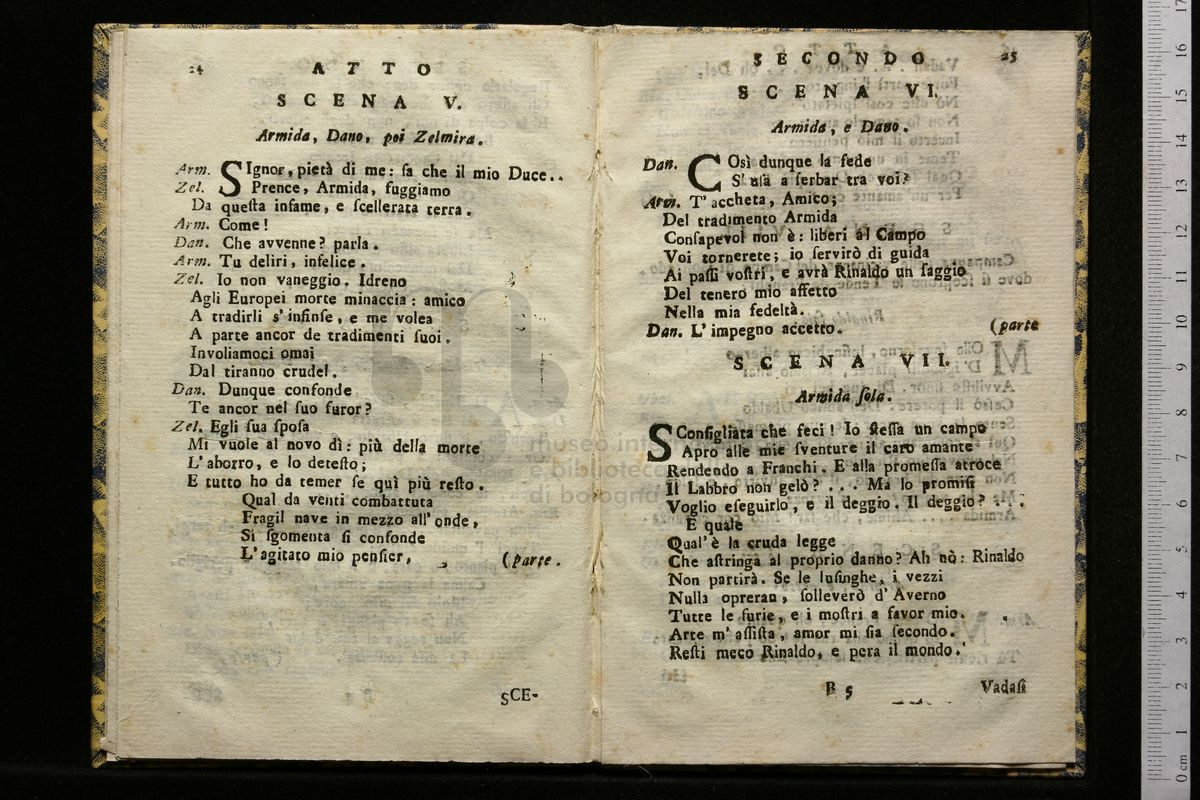 24
ATTO
SCENA V.
Armida, Dano, poi Zelmira.
Arm. SIgnor, pietà di me: fa che il mio Duce..
Zel. Prence, Armida, fuggiamo
Da queſta infame, e ſcellerata terra.
Arm. Come!
Dan. Che avvenne? parla.
Arm. Tu deliri, infelice.
Zel. Io non vaneggio. Idreno
Agli Europei morte minaccia: amico
A tradirli s'infinſe, e me volea
A parte ancor de tradimenti ſuoi.
Involiamoci omai
Dal tiranno crudel.
Dan. Dunque confonde
Te ancor nel ſuo furor?
Zel. Egli ſua ſpoſa
Mi vuole al novo dì: più della morte
L'aborro, e lo deteſto;
E tutto ho da temer ſe quì più reſto.
Qual da venti combattuta
Fragil nave in mezzo all'onde,
Si ſgomenta ſi confonde
L'agitato mio penſier, (parte.
SCE-
SECONDO
25
SCENA VI.
Armida, e Dano.
Dan. COsì dunque la fede
S'uſa a ſerbar tra voi?
Arm. T'accheta, Amico;
Del tradimento Armida
Conſapevol non è: liberi al Campo
Voi tornerete; io ſervirò di guida
Ai paſſi voſtri, e avrà Rinaldo un ſaggio
Del tenero mio affetto
Nella mia fedeltà.
Dan. L'impegno accetto. (parte
SCENA VII.
Armida ſola.
SConſigliata che feci! Io ſteſſa un campo
Apro alle mie ſventure il caro amante
Rendendo a Franchi. E alla promeſſa atroce
Il Labbro non gelò? ... Ma lo promiſi
Voglio eſeguirlo, e il deggio. Il deggio? ...
E quale
Qual'è la cruda legge
Che aſtringa al proprio danno? Ah nò: Rinaldo
Non partirà. Se le luſinghe, i vezzi
Nulla opreran, ſolleverò d'Averno
Tutte le furie, e i moſtri a favor mio.
Arte m'aſſiſta, amor mi ſia ſecondo.
Reſti meco Rinaldo, e pera il mondo.
B 5
Vadaſi